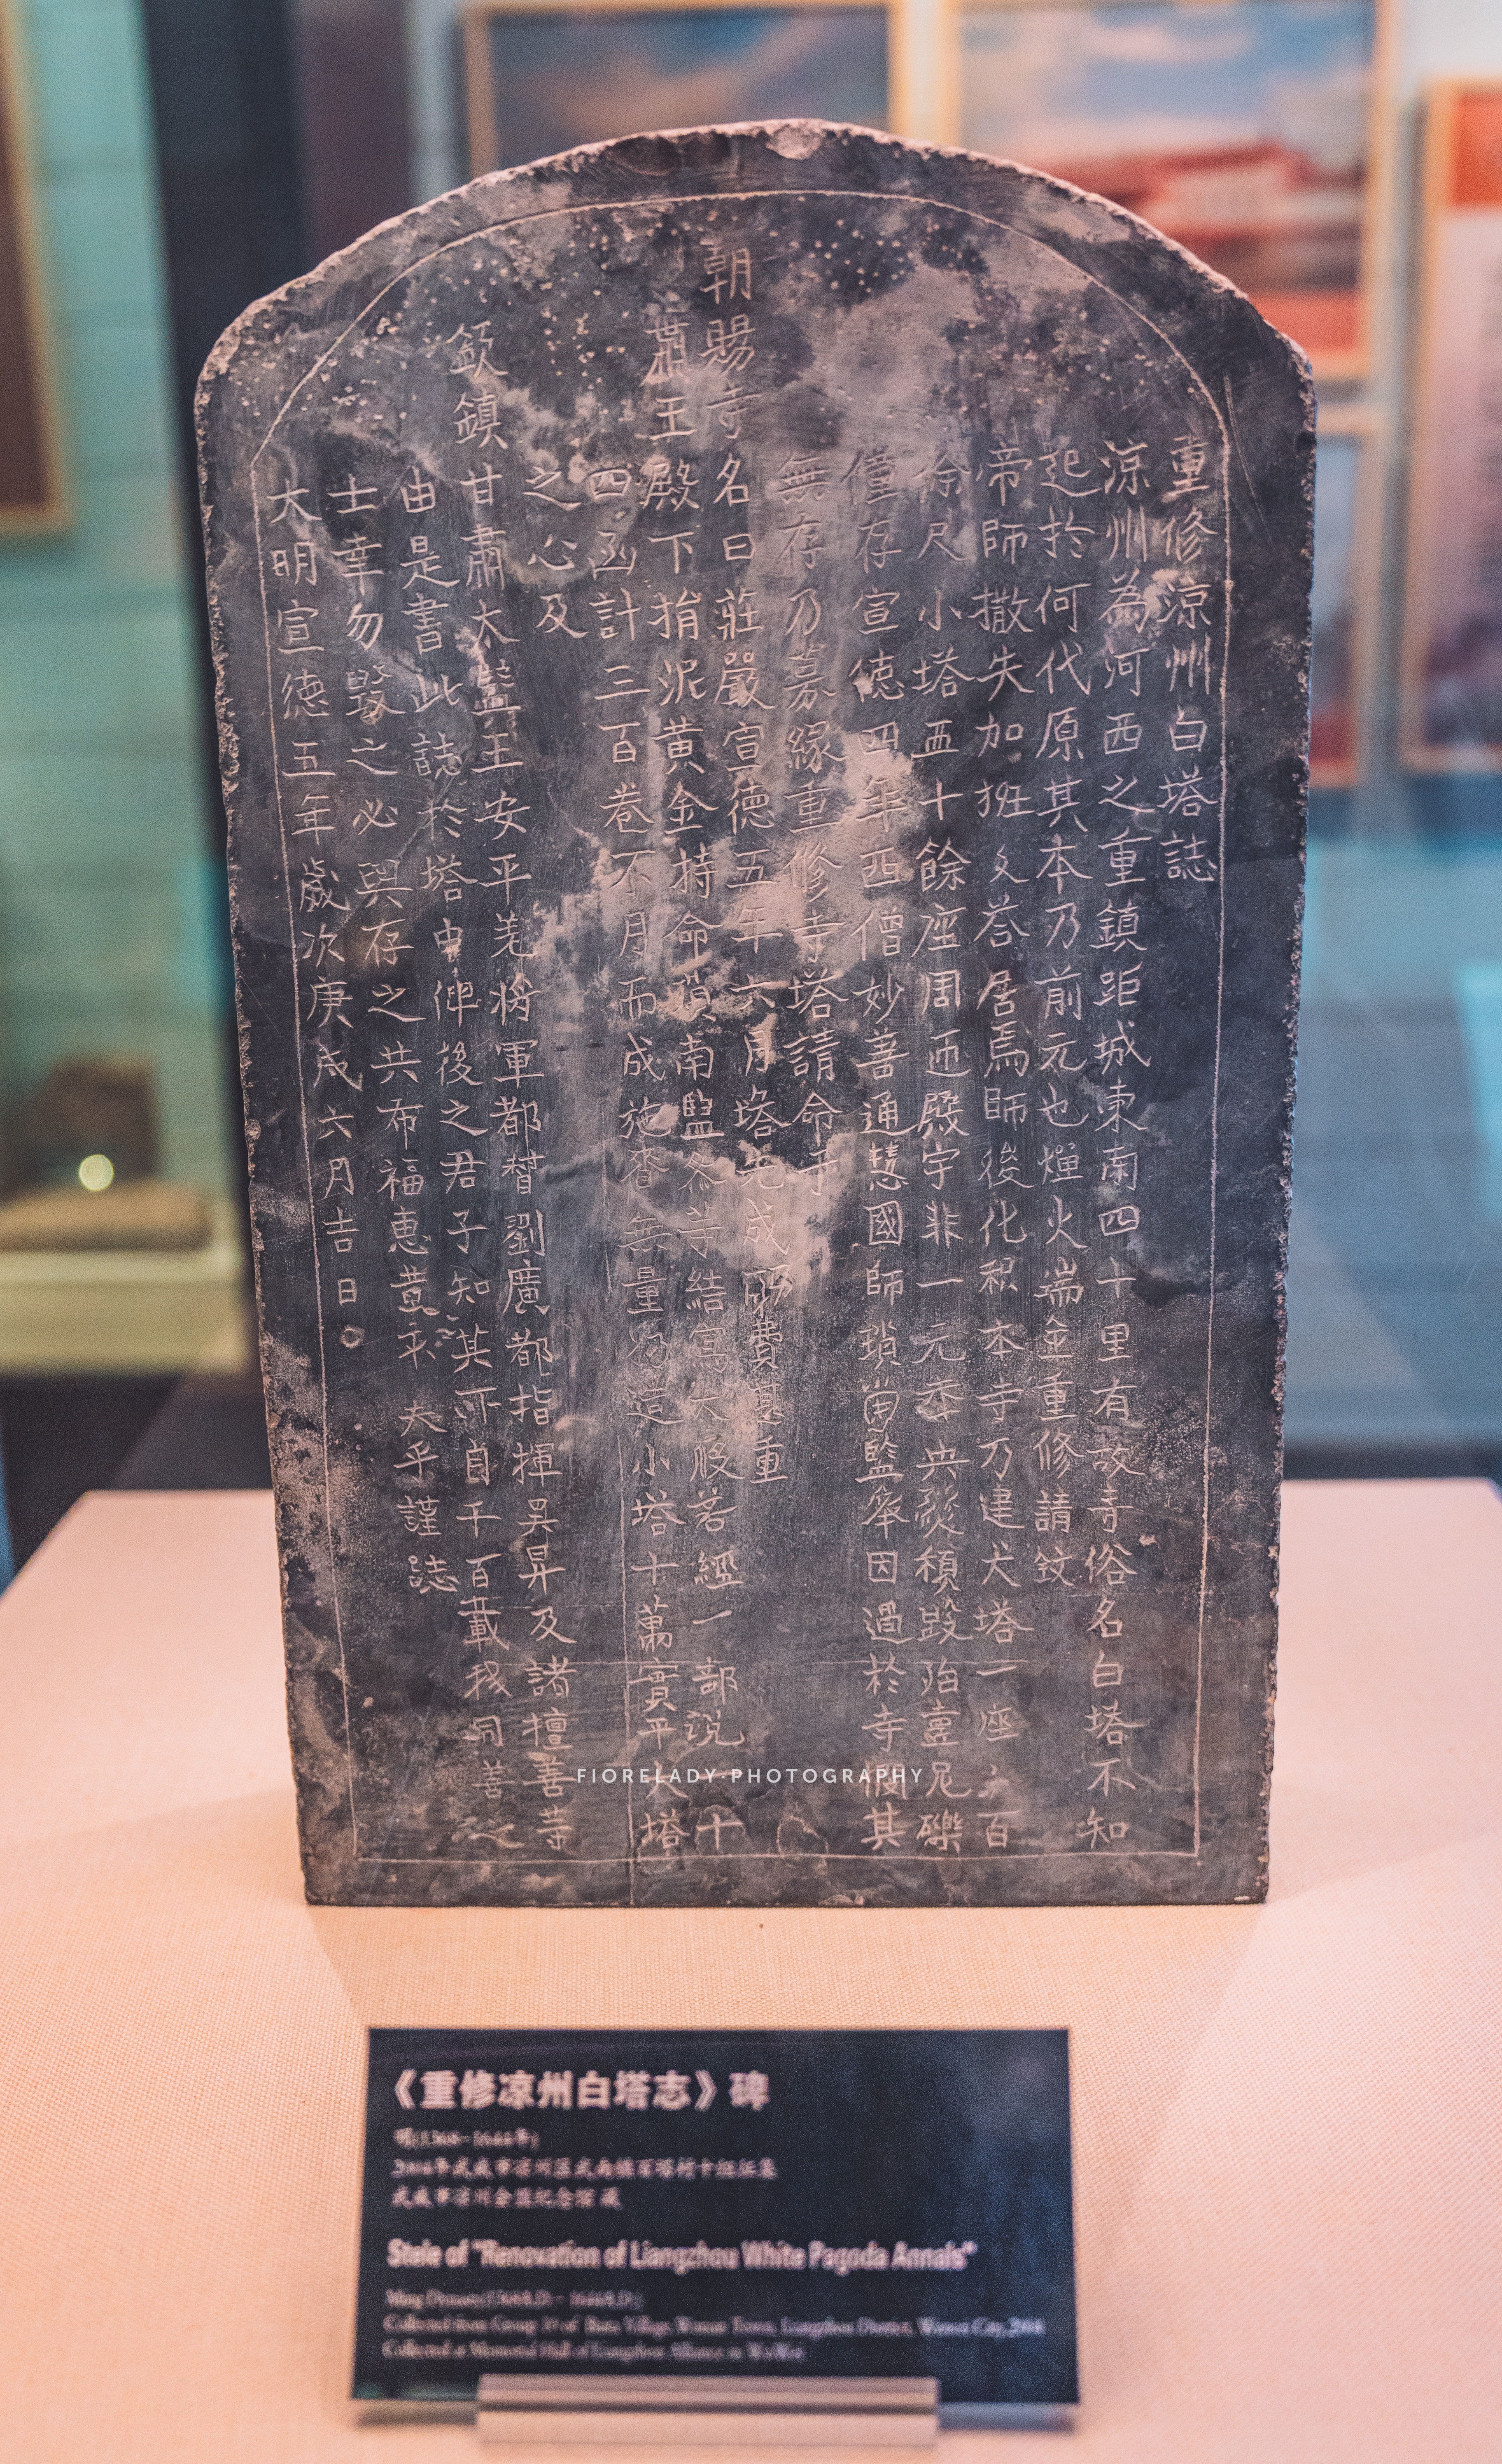 重修涼州白塔誌
涼州為河西之重鎮距城東南四十里有故寺俗名白塔不知
起於何代原其本乃前元也燵火端金重修請
帝師撒失加班 荅居焉師後化 本寺乃建大塔一座 百
餘尺小塔五十餘座周匝殿宇非一元季兵燹頹毀殆盡瓦礫
僅存宣德四年西僧妙善通慧國師 因過於寺憫其
無存乃募緣重修寺塔請命于
朝賜寺名曰莊嚴宣德五年六月塔先成 費 重
肅王殿下捐泥黃金特命 南監 等結寫大般若經一部說一十
四函計三百卷不月而成施 無量 造小塔十萬實平大塔
之心及
欽鎮甘肅太監王安平羌將軍都督劉廣都指揮吳昇及諸檀善 
由是書此誌於塔中俾後之君子知其所自千百載我同善之
士幸勿毀之必與存之共布福惠 夫乎謹誌
大明宣德五年歲次庚戌六月吉日
FIORELADY·PHOTOGRAPHY
《重修凉州白塔志》碑
明(1368-1644年)
武威市凉州会盟纪念馆 藏
Stele of "Renovation of Liangzhou White Pagoda Annals"
Collected at Memorial Hall of Liangzhou Alliance in WuWei